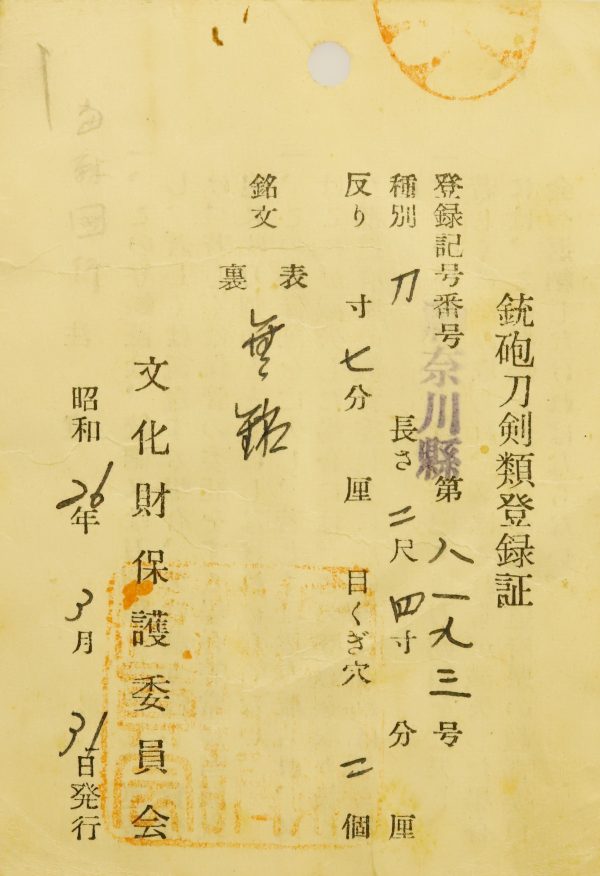 銃砲刀剣類登録証
登録記号番号 神奈川縣 第八一九三号
種別 刀 長さ 二尺 四寸 分 厘
反り 寸 七分 厘 目くぎ穴 二個
銘文 表 無銘
裏
文化財保護委員会
昭和26年3月31日発行